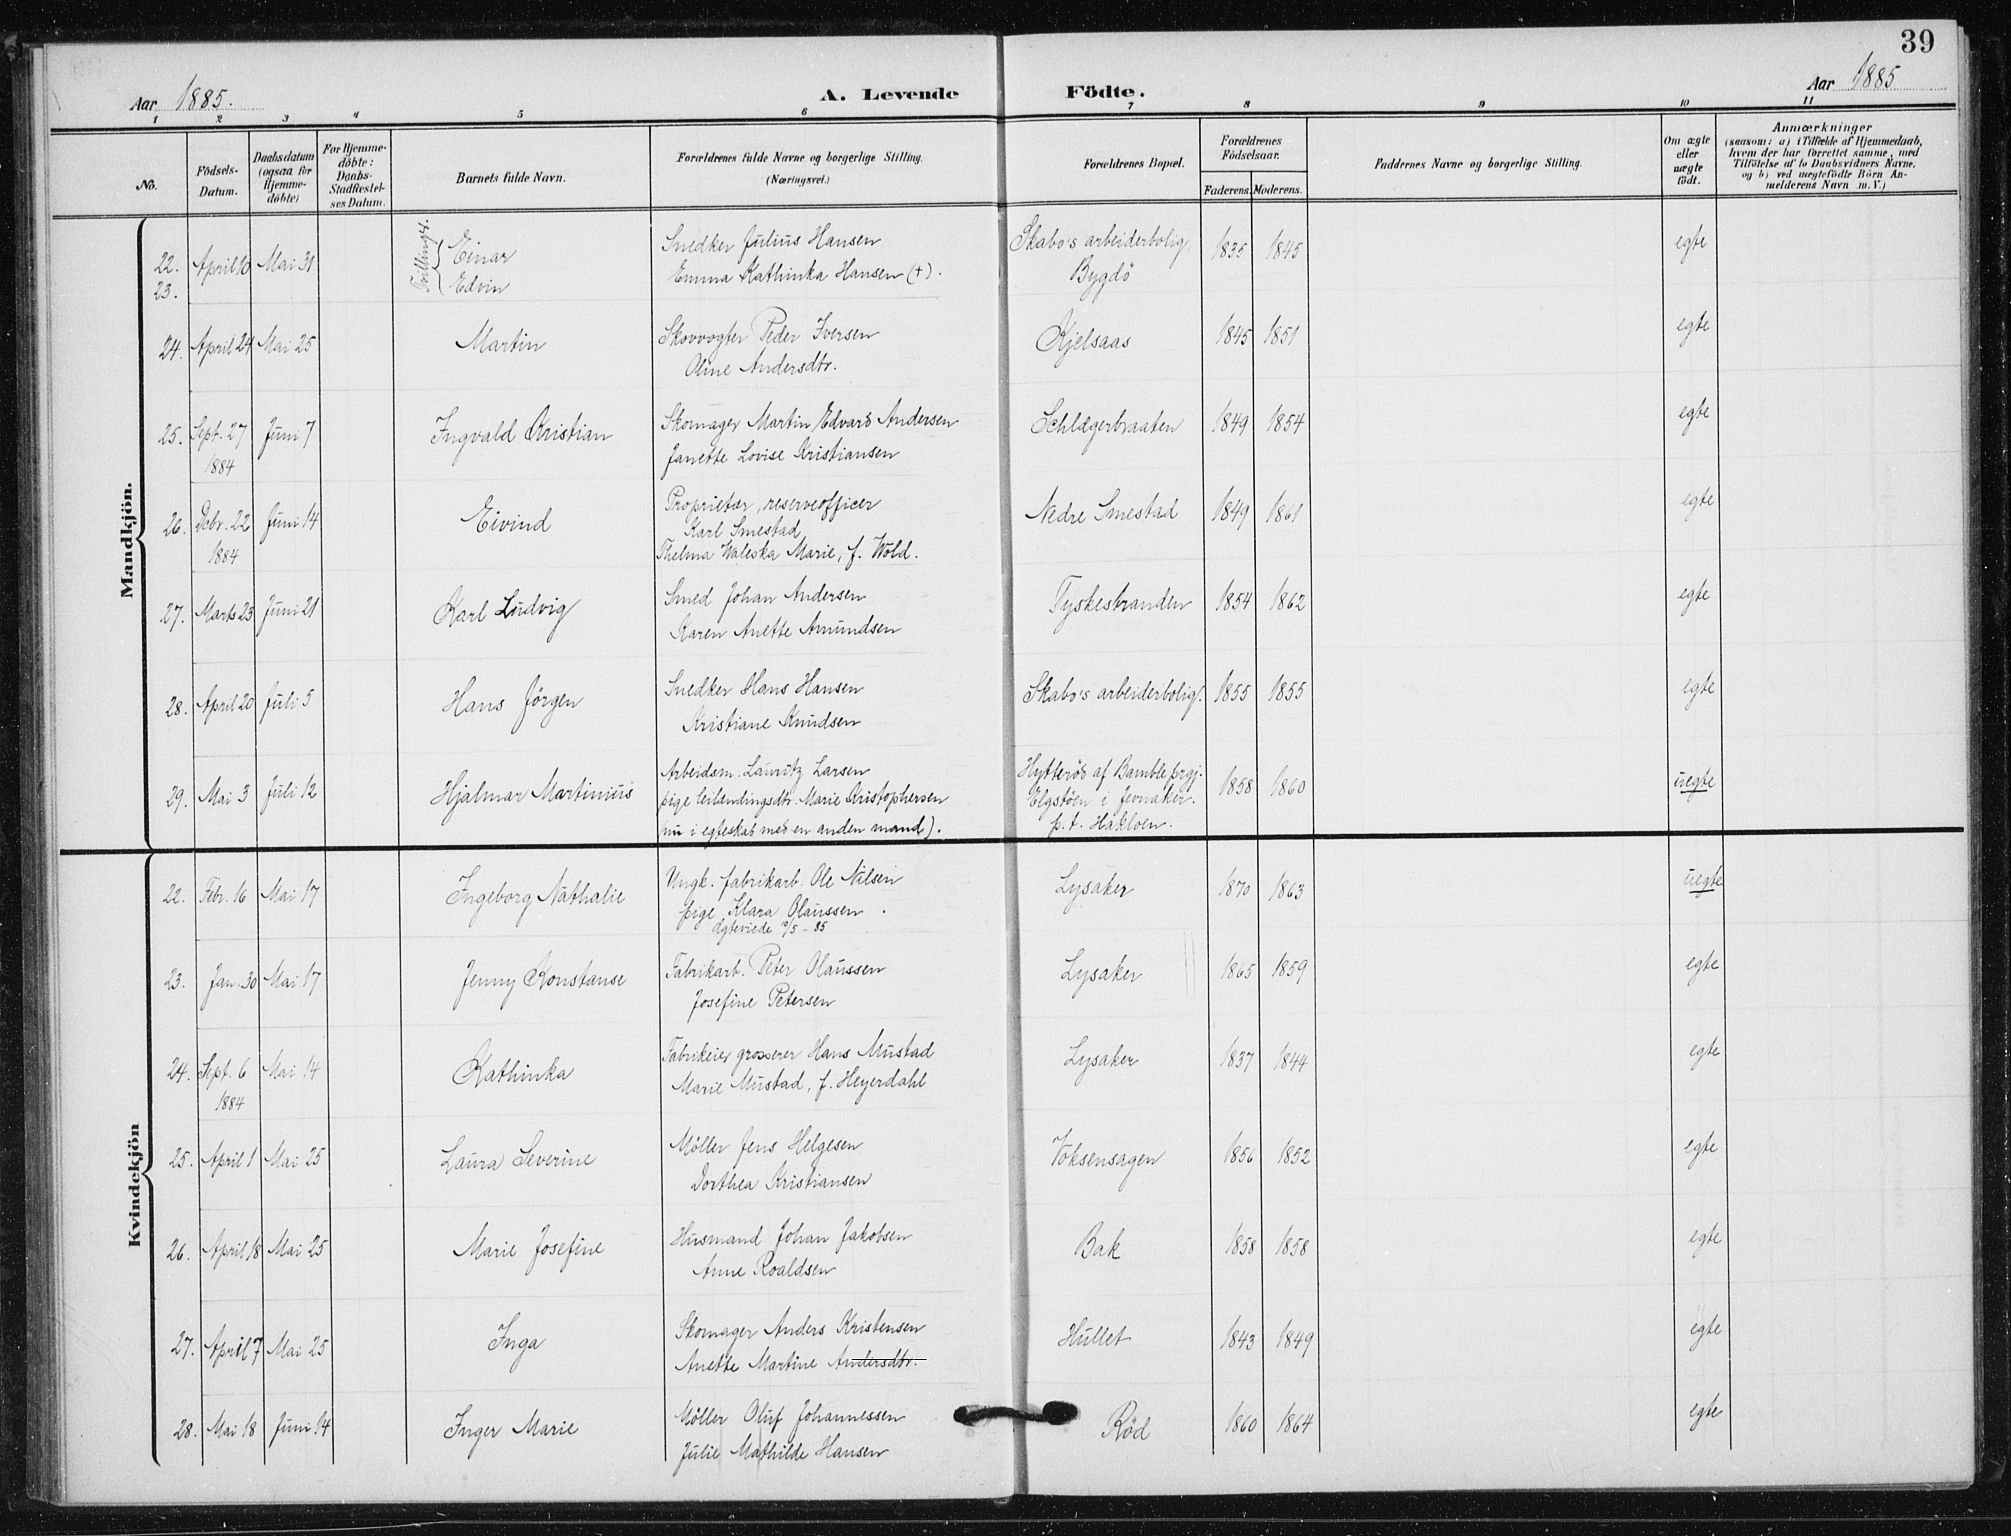 39
Aar 1885.
A. Levende Födte.
Aar 1885
1 2 3 4 5 6 7 8 9 10 11
No.
Födsels-Datum.
Daabsdatum (ogsaa for Hjemme-döbte)
For Hjemme-döbte: Daabs-Stadfæstel-ses Datum.
Barnets fulde Navn.
Forældrenes fulde Navne og borgerlige Stilling.
(Næringsvei.)
Forældrenes Bopæl.
Forældrenes Födselsaar.
Faderens. Moderens.
Faddernes Navne og borgerlige Stilling.
Om ægte eller uægte födt.
Anmærkninger
(saasom: a) i Tilfælde af Hjemmedaab, hvem der har forrettet samme, med Tilföielse af to Daabsvidners Navne, og b) ved uægtefödte Börn An-melderens Navn m. V.)
Mandkjön.
22. April 10 Mai 31 Einar Snedker Julius Hansen Skabo's arbeiderbolig, 1835 1845 egte
23. Tvillinger. Edvin Emma Kathinka Hansen (+). Bygdö
24. April 24 Mai 25 Martin Skovvogter Peder Iversen Kjelsaas 1845 1851 egte
Oline Andersdtr.
25. Sept. 27 Juni 7 Ingvald Kristian Skomager Martin Edvard Andersen Schlægerbraaten 1849 1854 egte
1884 Janette Lovise Kristiansen
26. Debr. 22 Juni 14 Eivind Proprietær, reserveofficer Nedre Smestad 1849 1861 egte
1884 Karl Smestad
Thelma Waleska Marie, f. Wold.
27. Marts 23 Juni 21 Karl Ludvig Smed Johan Andersen Tyskestranden 1854 1862 egte
Karen Anette Amundsen
28. April 20 Juli 5 Hans Jörgen Snedker Hans Hansen Skabo's arbeiderbolig. 1855 1855 egte
Kristiane Knudsen
29. Mai 3 Juli 12 Hjalmar Martinius Arbeidsm. Lauritz Larsen Hytteröd af Bamble prgj. 1858 1860 uegte
pige leilændingsdtr. Marie Kristophersen Elgstöen i Jevnaker.
(nu i egteskab med en anden mand). p. t. Hakloen.
Kvindekjön
22. Febr. 16 Mai 17 Ingeborg Nathalie Ungk. fabrikarb. Ole Nilsen Lysaker 1870 1863 uegte
pige Klara Olaussen.
Egteviede /5 - 85
23. Jan. 30 Mai 17 Jenny Konstanse Fabrikarb. Peter Olaussen Lysaker 1865 1859 egte
Josefine Petersen
24. Sept. 6 Mai 14 Kathinka Fabrikeier grosserer Hans Mustad Lysaker 1837 1844 egte
1884 Marie Mustad, f. Heyerdahl
25. April 1 Mai 25 Laura Severine Möller Jens Helgesen Voksensagen 1856 1852 egte
Dorthea Kristiansen
26. April 18 Mai 25 Marie Josefine Husmand Johan Jakobsen Bak 1858 1858 egte
Anne Roaldsen
27. April 7 Mai 25 Inga Skomager Anders Kristensen Hullet 1843 1849 egte
Anette Martine Andersdtr.
28. Mai 18 Juni 14 Inger Marie Möller Oluf Johannessen Röd 1860 1864 egte
Julie Mathilde Hansen